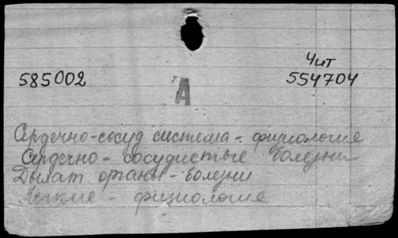 Чит
585002 А 554704
Сердечно-сосуд система - физиология
Сердечно - сосудистые болезни
Дыхат органы - болезни
Легкие - физиология